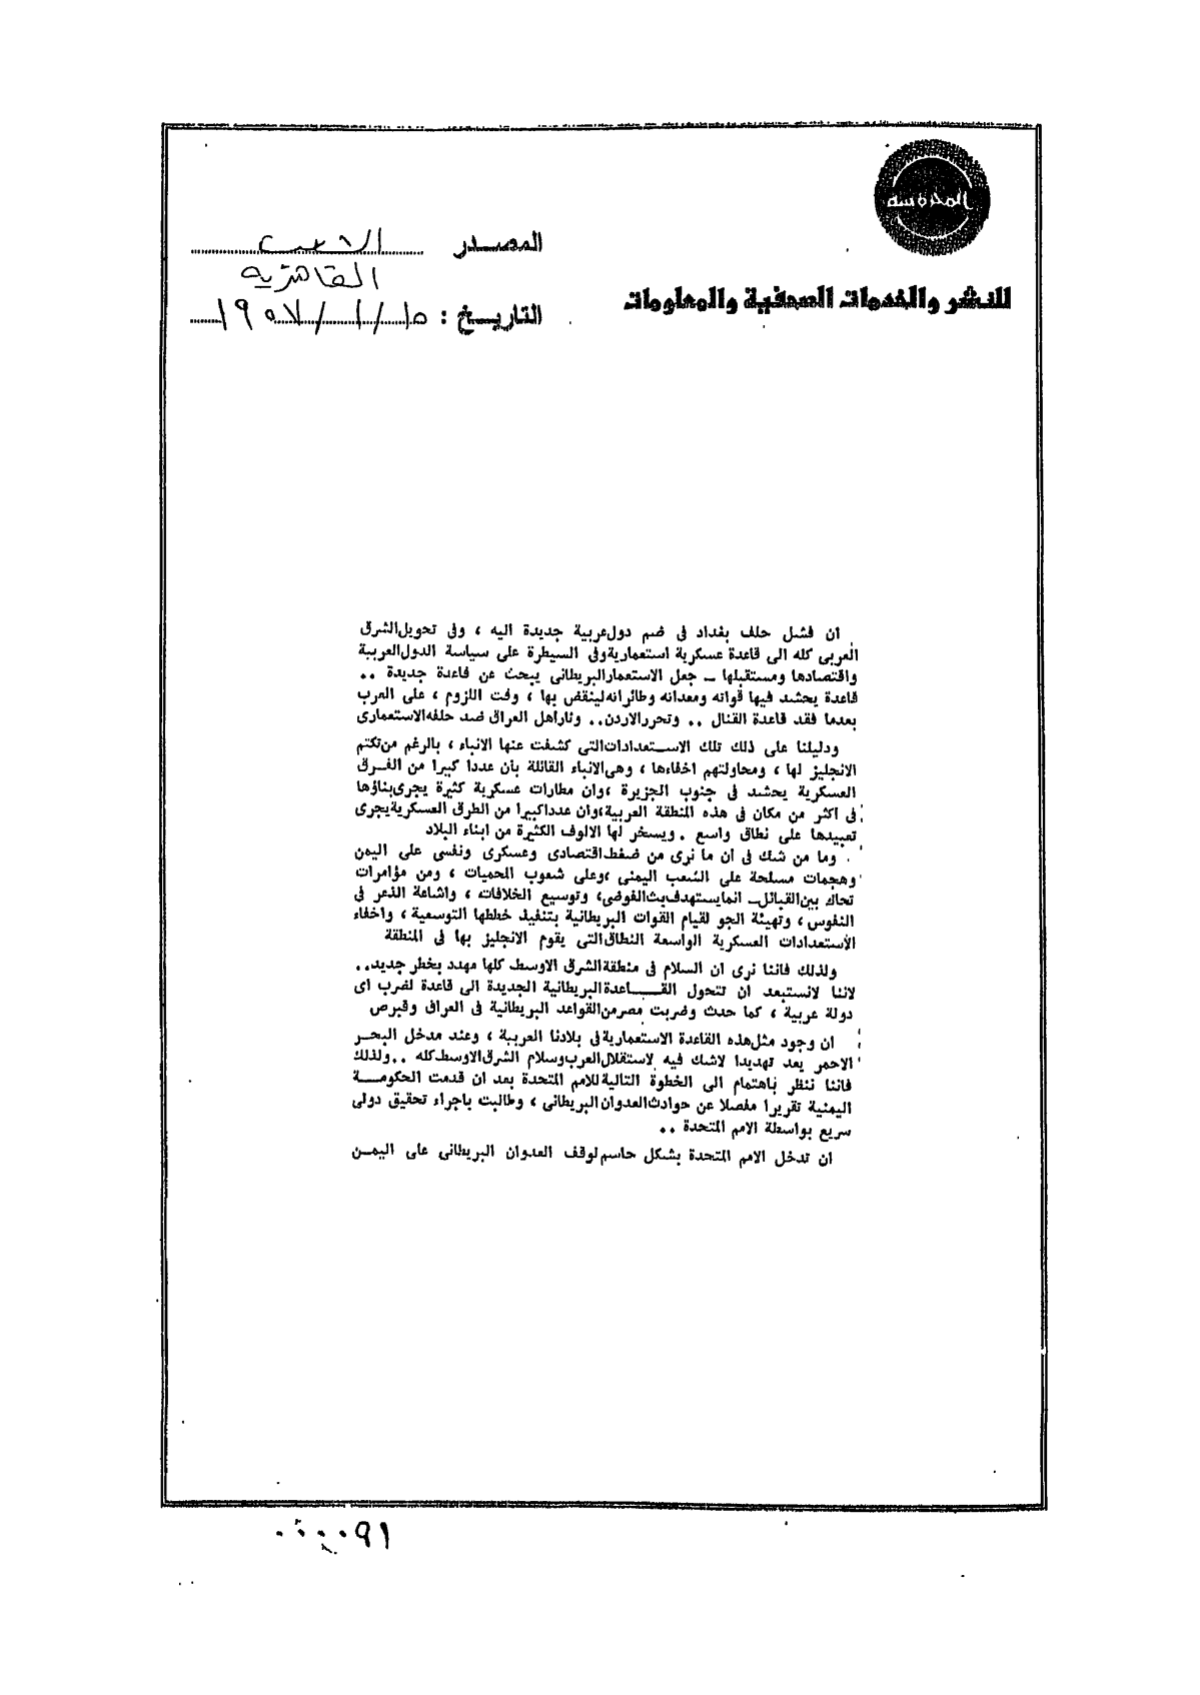 المحروسة
للنشر والخدمات الصحفية والمعلومات
المصدر
القاهرية
التاريخ : ١٥/١/١٩٥٧
ان فشل حلف بغداد فى ضم دول عربية جديدة اليه ، وفى تحويل الشرق
العربى كله الى قاعدة عسكرية استعمارية وفى السيطرة على سياسة الدول العربية
واقتصادها ومستقبلها – جعل الاستعمار البريطانى يبحث عن قاعدة جديدة ..
قاعدة يحشد فيها قواته ومعداته وطائراته لينقض بها ، وقت اللزوم ، على العرب
بعدما فقد قاعدة القنال .. وتحرر الاردن.. وثار اهل العراق ضد حلفه الاستعمارى
ودليلنا على ذلك تلك الاستعدادات التى كشفت عنها الانباء ، بالرغم من تكتم
الانجليز لها ، ومحاولتهم اخفاءها ، وهى الانباء القائلة بأن عددا كبيرا من الفرق
العسكرية يحشد فى جنوب الجزيرة ،وان مطارات عسكرية كثيرة يجرى بناؤها
فى اكثر من مكان فى هذه المنطقة العربية،وان عددا كبيرا من الطرق العسكرية يجرى
تعبيدها على نطاق واسع . ويسخر لها الالوف الكثيرة من ابناء البلاد
وما من شك فى ان ما نرى من ضغط اقتصادى وعسكرى ونفسى على اليمن
وهجمات مسلحة على الشعب اليمنى ،وعلى شعوب المحميات ، ومن مؤامرات
تحاك بين القبائل – انما يستهدف بث الفوضى، وتوسيع الخلافات ، واشاعة الذعر فى
النفوس ، وتهيئة الجو لقيام القوات البريطانية بتنفيذ خططها التوسعية ، واخفاء
الأستعدادات العسكرية الواسعة النطاق التى يقوم الانجليز بها فى المنطقة
ولذلك فاننا نرى ان السلام فى منطقة الشرق الاوسط كلها مهدد بخطر جديد..
لاننا لانستبعد ان تتحول القاعدة البريطانية الجديدة الى قاعدة لضرب اى
دولة عربية ، كما حدث وضربت مصر من القواعد البريطانية فى العراق وقبرص
ان وجود مثل هذه القاعدة الاستعمارية فى بلادنا العربية ، وعند مدخل البحر
الاحمر يعد تهديدا لاشك فيه لاستقلال العرب وسلام الشرق الاوسط كله .. ولذلك
فاننا ننظر باهتمام الى الخطوة التالية للامم المتحدة بعد ان قدمت الحكومة
اليمنية تقريرا مفصلا عن حوادث العدوان البريطانى ، وطالبت باجراء تحقيق دولى
سريع بواسطة الامم المتحدة ..
ان تدخل الامم المتحدة بشكل حاسم لوقف العدوان البريطانى على اليمن